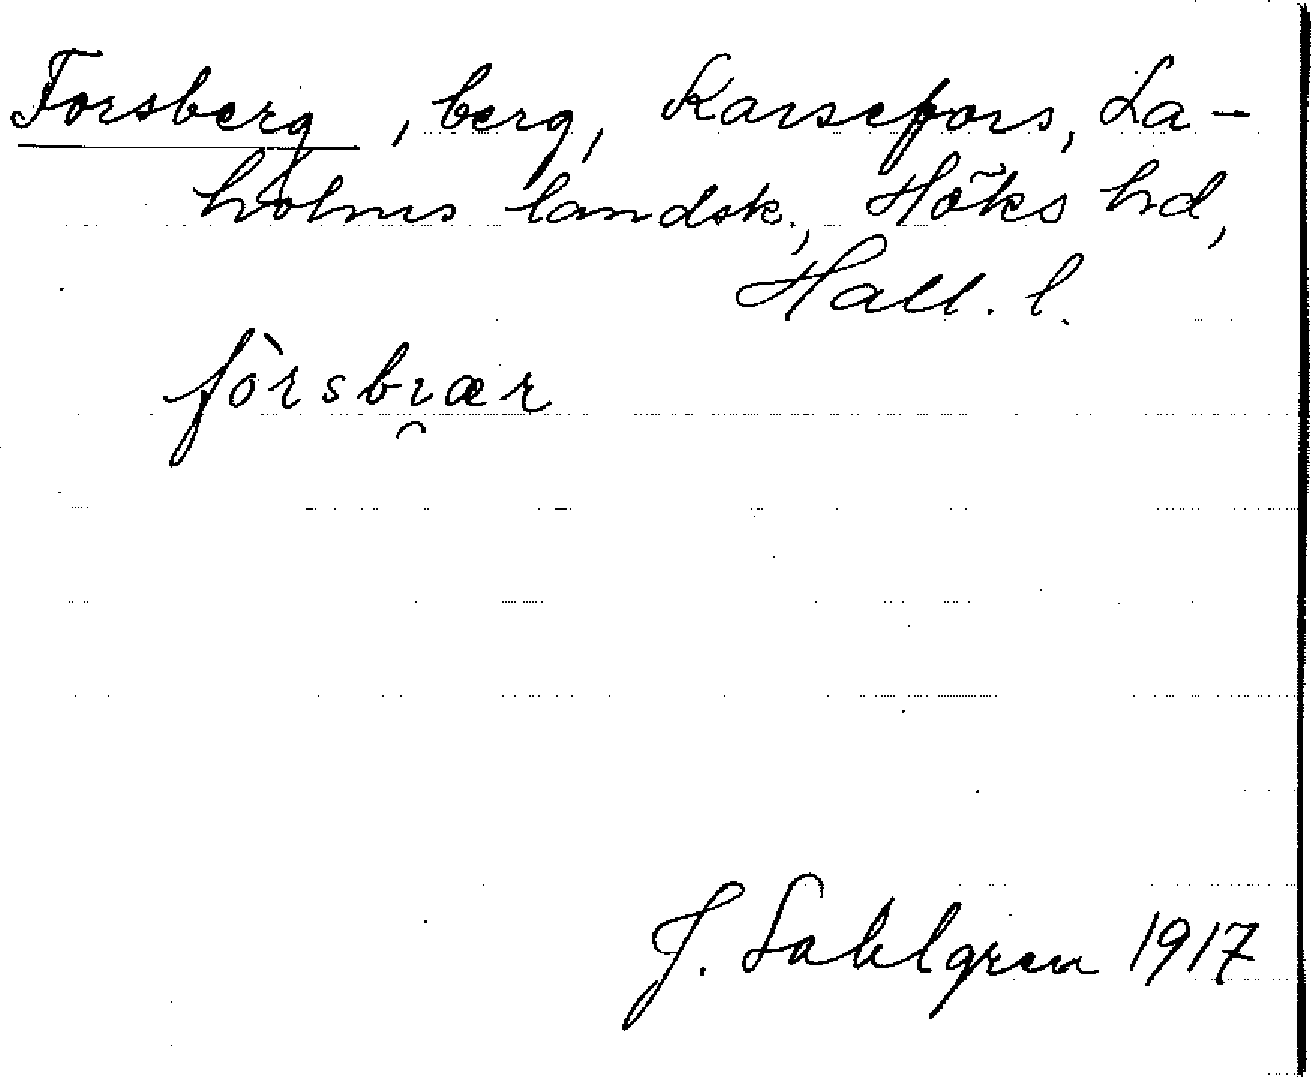 Forsberg, berg, Karsefors, La-
holms landsk., Höks hd,
Hall. l.
fòrsbı̯ær
J. Sahlgren 1917